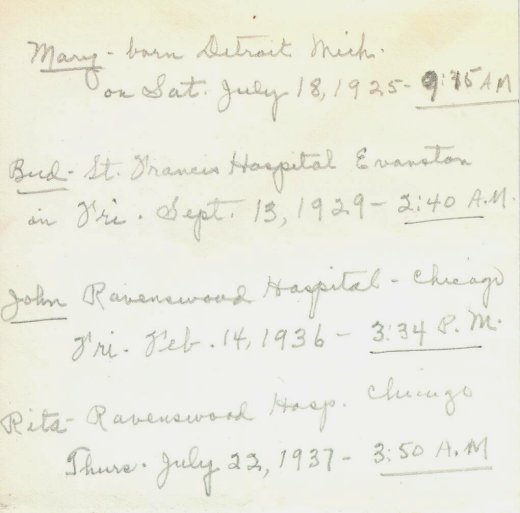 Mary - born Detroit Mich.
on Sat. July 18, 1925 - 9:15 AM
Bud - St. Francis Hospital Evanston
in Fri. Sept. 13, 1929 - 2:40 A.M.
John Ravenswood Hospital - Chicago
Fri. Feb. 14, 1936 - 3:34 P.M.
Rita - Ravenswood Hosp. Chicago
Thurs. July 22, 1937 - 3:50 A.M